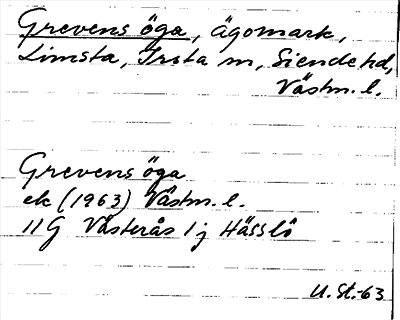 Grevens öga, ägomark,
Limsta, Irsta sn, Siende hd,
Västm. l.
Grevens öga
ek (1963) Västm. l.
11G Västerås 1j Hässlö
U.St.-63